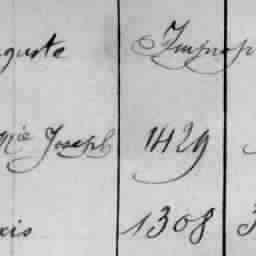 guste Improp
Mie Joseph 1429
xis 1308 3